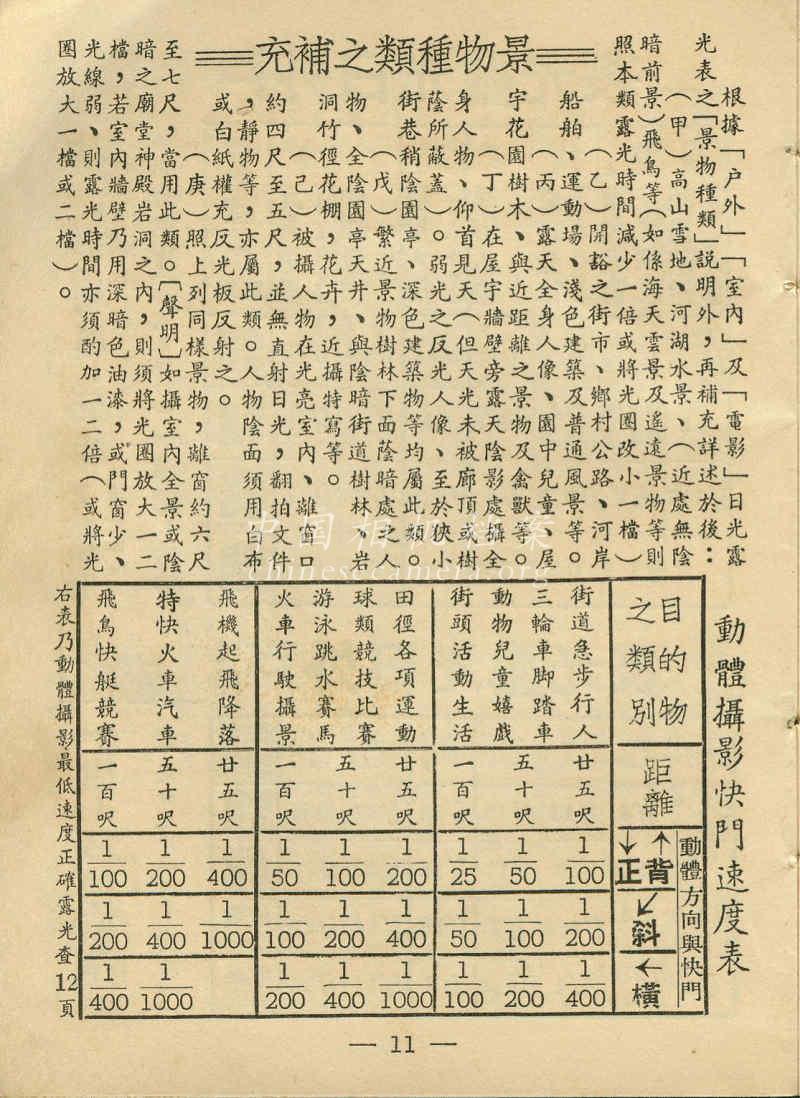 景物種類之補充
根據「戶外」「室內」及「電影」日光露
光表之「景物種類」說明外，再補充詳述於後：
（甲）高山雪地、河湖水景、（近處無陰
暗前景）飛鳥等（如係海天雲景及遙遠景物等則
照本類露光時間減少一倍或將光圈改小一檔）
（乙）開豁之街市、鄉村公路、河岸
船舶、運動場、淺色建築及普通風景等。
（丙）露天全身人像、園中兒童、屋
宇花園樹木、與近距離之景物及禽獸等。
（丁）在屋宇牆壁旁露天陰影處攝全
身人物、仰首見天（但天光未被廊頂或樹
蔭所蔽蓋）。弱光之反光人像、至於狹小
街巷稍陰園亭、深色建築物等均屬此類。
（戊）繁近景物樹林下面蔭暗處之人
物、全陰園亭天井、與陰暗街道樹林、岩
洞竹徑花棚，花卉，近攝特寫等。
（己）被攝人物在光亮室內、離窗口
約四尺至五尺，並無直射日光，翻拍文件
，靜物等，亦屬此類。人物陰面須用白布
或白紙權充反光板反射之。
（庚）照上列同樣景物，離窗約六尺
至七尺，當用此類。〔聲明〕如攝室內全景或陰
暗之廟堂神殿岩洞之內，則須將光圈放大一二
檔，若室內牆壁乃用深暗色油漆，或門窗少、
光線弱、則露光時間亦須酌加一二倍（或將光
圈放大一檔或二檔）。
動體攝影快門速度表
目的物之類別
街道急步行人
三輪車脚踏車
動物兒童嬉戲
街頭活動生活
田徑各項運動
球類競技比賽
游泳跳水賽馬
火車行駛攝景
飛機起飛降落
特快火車汽車
飛鳥快艇競賽
距離
廿五呎 五十呎 一百呎 廿五呎 五十呎 一百呎 廿五呎 五十呎 一百呎
動體方向與快門
↑背 ↓正 1/100 1/50 1/25 1/200 1/100 1/50 1/400 1/200 1/100
↙斜 1/200 1/100 1/50 1/400 1/200 1/100 1/1000 1/400 1/200
←橫 1/400 1/200 1/100 1/1000 1/400 1/200 1/1000 1/400
右表乃動體攝影最低速度正確露光查12頁
— 11 —
chinesecamera.org